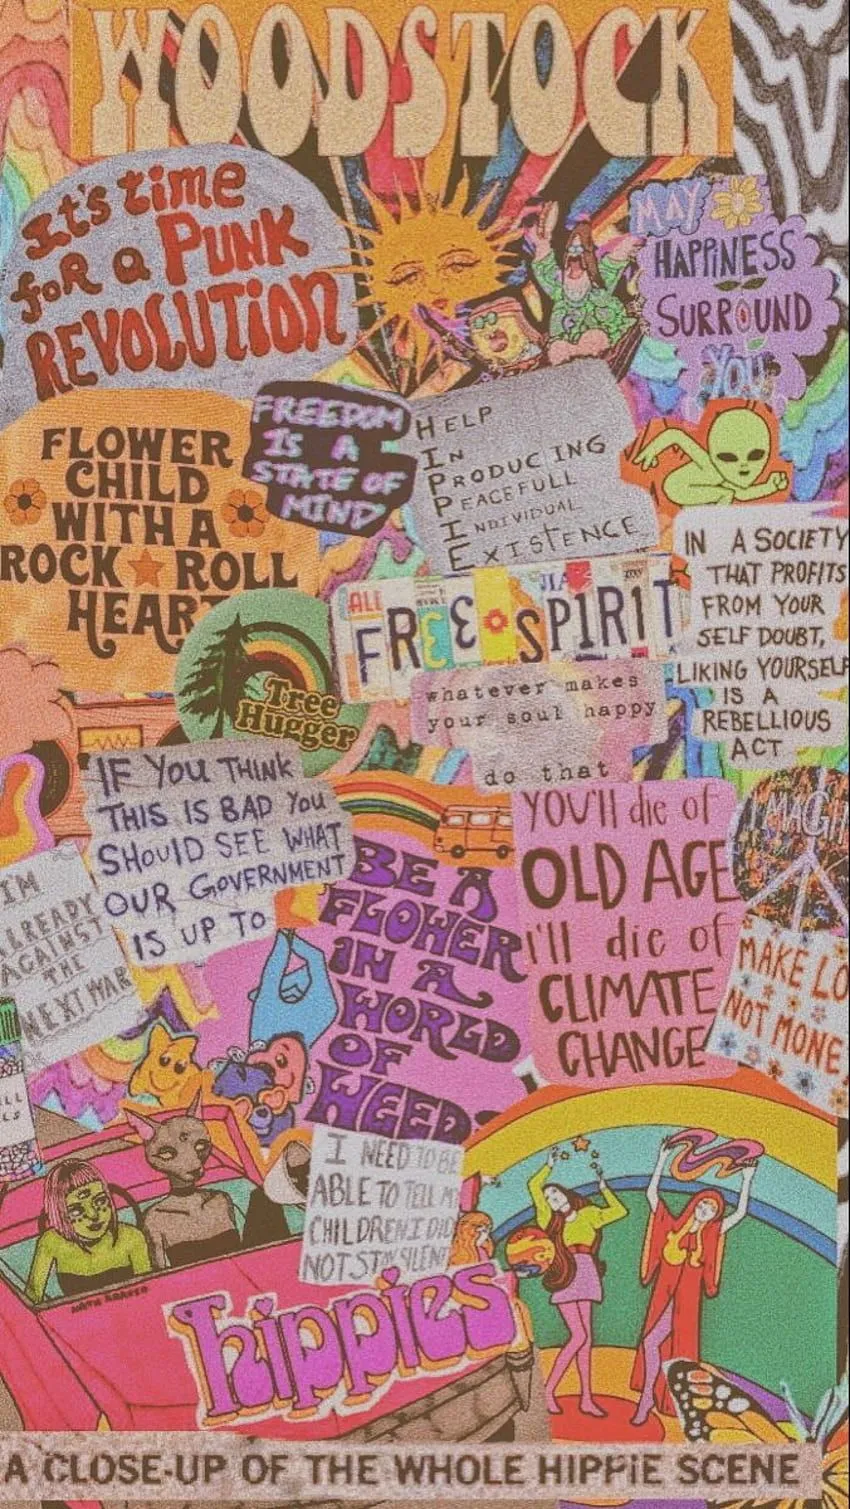 WOODSTOCK
It's time
for a PUNK
REVOLUTION
MAY
HAPPINESS
SURROUND
YOU
FLOWER
CHILD
WITH A
ROCK ROLL
HEART
FREEDOM
IS A
STATE OF
MIND
HELP
IN
PRODUCING
PEACEFULL
INDIVIDUAL
EXISTENCE
ALL
FREE SPIRIT
IN A SOCIETY
THAT PROFITS
FROM YOUR
SELF DOUBT,
LIKING YOURSELF
IS A
REBELLIOUS
ACT
Tree
Hugger
whatever makes
your soul happy
do that
IF YOU THINK
THIS IS BAD YOU
SHOULD SEE WHAT
OUR GOVERNMENT
IS UP TO
YOU'll die of
OLD AGE
I'll die of
CLIMATE
CHANGE
IMAGI
I'M
ALREADY
AGAINST
THE
NEXT WAR
BE A
FLOWER
IN A
WORLD
OF
WEEDS
MAKE LO
NOT MONE
I NEED TO BE
ABLE TO TELL M
CHILDREN I DID
NOT STAY SILENT
hippies
A CLOSE-UP OF THE WHOLE HIPPIE SCENE